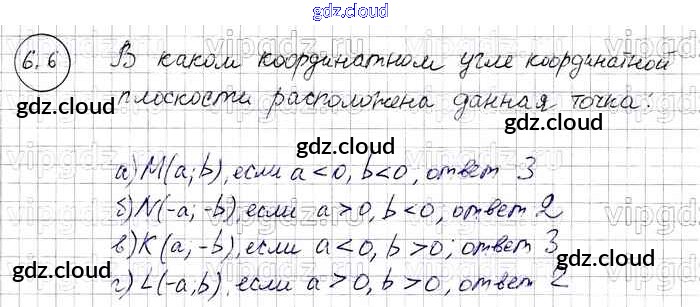 gdz.cloud
6.6 В каком координатном угле координатной
плоскости расположена данная точка:
gdz.cloud gdz.cloud
gdz.cloud
а) M(a; b), если a < 0, b < 0, ответ 3
б) N(-a; -b), если a > 0, b < 0, ответ 2
gdz.cloud gdz.cloud
в) K(a; -b), если a < 0, b > 0; ответ 3
gdz.cloud gdz.cloud
г) L(-a, b), если a > 0, b > 0, ответ 2
gdz.cloud